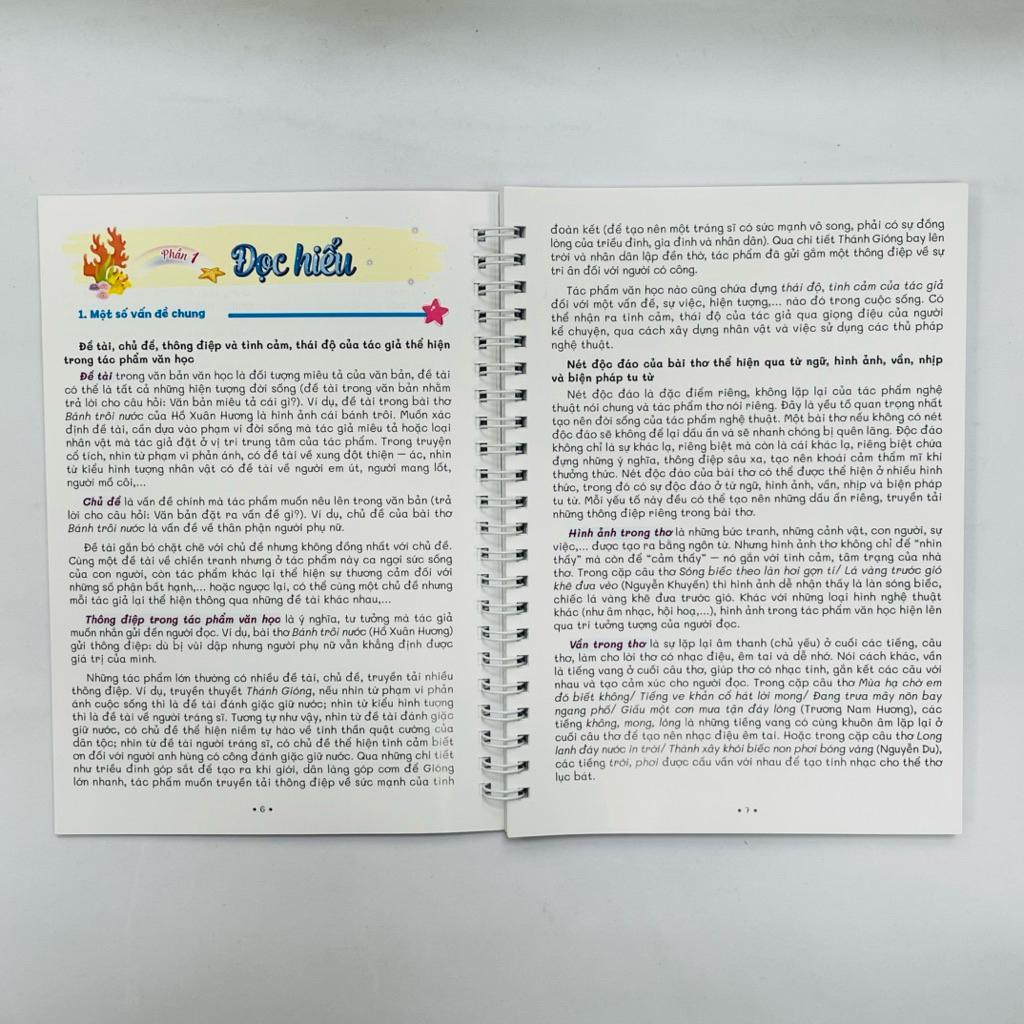 Phần 1
Đọc hiểu
1. Một số vấn đề chung
Đề tài, chủ đề, thông điệp và tình cảm, thái độ của tác giả thể hiện
trong tác phẩm văn học
Đề tài trong văn bản văn học là đối tượng miêu tả của văn bản, đề tài
có thể là tất cả những hiện tượng đời sống (đề tài trong văn bản nhằm
trả lời cho câu hỏi: Văn bản miêu tả cái gì?). Ví dụ, đề tài trong bài thơ
Bánh trôi nước của Hồ Xuân Hương là hình ảnh cái bánh trôi. Muốn xác
định đề tài, cần dựa vào phạm vi đời sống mà tác giả miêu tả hoặc loại
nhân vật mà tác giả đặt ở vị trí trung tâm của tác phẩm. Trong truyện
cổ tích, nhìn từ phạm vi phản ánh, có đề tài về xung đột thiện – ác, nhìn
từ kiểu hình tượng nhân vật có đề tài về người em út, người mang lốt,
người mồ côi,...
Chủ đề là vấn đề chính mà tác phẩm muốn nêu lên trong văn bản (trả
lời cho câu hỏi: Văn bản đặt ra vấn đề gì?). Ví dụ, chủ đề của bài thơ
Bánh trôi nước là vấn đề về thân phận người phụ nữ.
Đề tài gắn bó chặt chẽ với chủ đề nhưng không đồng nhất với chủ đề.
Cùng một đề tài về chiến tranh nhưng ở tác phẩm này ca ngợi sức sống
của con người, còn tác phẩm khác lại thể hiện sự thương cảm đối với
những số phận bất hạnh,... hoặc ngược lại, có thể cùng một chủ đề nhưng
mỗi tác giả lại thể hiện thông qua những đề tài khác nhau,...
Thông điệp trong tác phẩm văn học là ý nghĩa, tư tưởng mà tác giả
muốn nhắn gửi đến người đọc. Ví dụ, bài thơ Bánh trôi nước (Hồ Xuân Hương)
gửi thông điệp: dù bị vùi dập nhưng người phụ nữ vẫn khẳng định được
giá trị của mình.
Những tác phẩm lớn thường có nhiều đề tài, chủ đề, truyền tải nhiều
thông điệp. Ví dụ, truyền thuyết Thánh Gióng, nếu nhìn từ phạm vi phản
ánh cuộc sống thì là đề tài đánh giặc giữ nước; nhìn từ kiểu hình tượng
thì là đề tài về người tráng sĩ. Tương tự như vậy, nhìn từ đề tài đánh giặc
giữ nước, có chủ đề thể hiện niềm tự hào về tinh thần quật cường của
dân tộc; nhìn từ đề tài người tráng sĩ, có chủ đề thể hiện tình cảm biết
ơn đối với người anh hùng có công đánh giặc giữ nước. Qua những chi tiết
như triều đình góp sắt để tạo ra khí giới, dân làng góp cơm để Gióng
lớn nhanh, tác phẩm muốn truyền tải thông điệp về sức mạnh của tinh
• 6 •
đoàn kết (để tạo nên một tráng sĩ có sức mạnh vô song, phải có sự đồng
lòng của triều đình, gia đình và nhân dân). Qua chi tiết Thánh Gióng bay lên
trời và nhân dân lập đền thờ, tác phẩm đã gửi gắm một thông điệp về sự
tri ân đối với người có công.
Tác phẩm văn học nào cũng chứa đựng thái độ, tình cảm của tác giả
đối với một vấn đề, sự việc, hiện tượng,... nào đó trong cuộc sống. Có
thể nhận ra tình cảm, thái độ của tác giả qua giọng điệu của người
kể chuyện, qua cách xây dựng nhân vật và việc sử dụng các thủ pháp
nghệ thuật.
Nét độc đáo của bài thơ thể hiện qua từ ngữ, hình ảnh, vần, nhịp
và biện pháp tu từ
Nét độc đáo là đặc điểm riêng, không lặp lại của tác phẩm nghệ
thuật nói chung và tác phẩm thơ nói riêng. Đây là yếu tố quan trọng nhất
tạo nên đời sống của tác phẩm nghệ thuật. Một bài thơ nếu không có nét
độc đáo sẽ không để lại dấu ấn và sẽ nhanh chóng bị quên lãng. Độc đáo
không chỉ là sự khác lạ, riêng biệt mà còn là cái khác lạ, riêng biệt chứa
đựng những ý nghĩa, thông điệp sâu xa, tạo nên khoái cảm thẩm mĩ khi
thưởng thức. Nét độc đáo của bài thơ có thể được thể hiện ở nhiều hình
thức, trong đó có sự độc đáo ở từ ngữ, hình ảnh, vần, nhịp và biện pháp
tu từ. Mỗi yếu tố này đều có thể tạo nên những dấu ấn riêng, truyền tải
những thông điệp riêng trong bài thơ.
Hình ảnh trong thơ là những bức tranh, những cảnh vật, con người, sự
việc,... được tạo ra bằng ngôn từ. Nhưng hình ảnh thơ không chỉ để “nhìn
thấy” mà còn để “cảm thấy” – nó gắn với tình cảm, tâm trạng của nhà
thơ. Trong cặp câu thơ Sóng biếc theo làn hơi gợn tí/ Lá vàng trước gió
khẽ đưa vèo (Nguyễn Khuyến) thì hình ảnh dễ nhận thấy là làn sóng biếc,
chiếc lá vàng khẽ đưa trước gió. Khác với những loại hình nghệ thuật
khác (như âm nhạc, hội hoạ,...), hình ảnh trong tác phẩm văn học hiện lên
qua trí tưởng tượng của người đọc.
Vần trong thơ là sự lặp lại âm thanh (chủ yếu) ở cuối các tiếng, câu
thơ, làm cho lời thơ có nhạc điệu, êm tai và dễ nhớ. Nói cách khác, vần
là tiếng vang ở cuối câu thơ, giúp thơ có nhạc tính, gắn kết các câu với
nhau và tạo cảm xúc cho người đọc. Trong cặp câu thơ Mùa hạ chờ em
đó biết không/ Tiếng ve khản cổ hát lời mong/ Đang trưa mây nõn bay
ngang phố/ Giấu một cơn mưa tận đáy lòng (Trương Nam Hương), các
tiếng không, mong, lòng là những tiếng vang có cùng khuôn âm lặp lại ở
cuối câu thơ để tạo nên nhạc điệu êm tai. Hoặc trong cặp câu thơ Long
lanh đáy nước in trời/ Thành xây khói biếc non phơi bóng vàng (Nguyễn Du),
các tiếng trời, phơi được cấu vần với nhau để tạo tính nhạc cho thể thơ
lục bát.
• 7 •